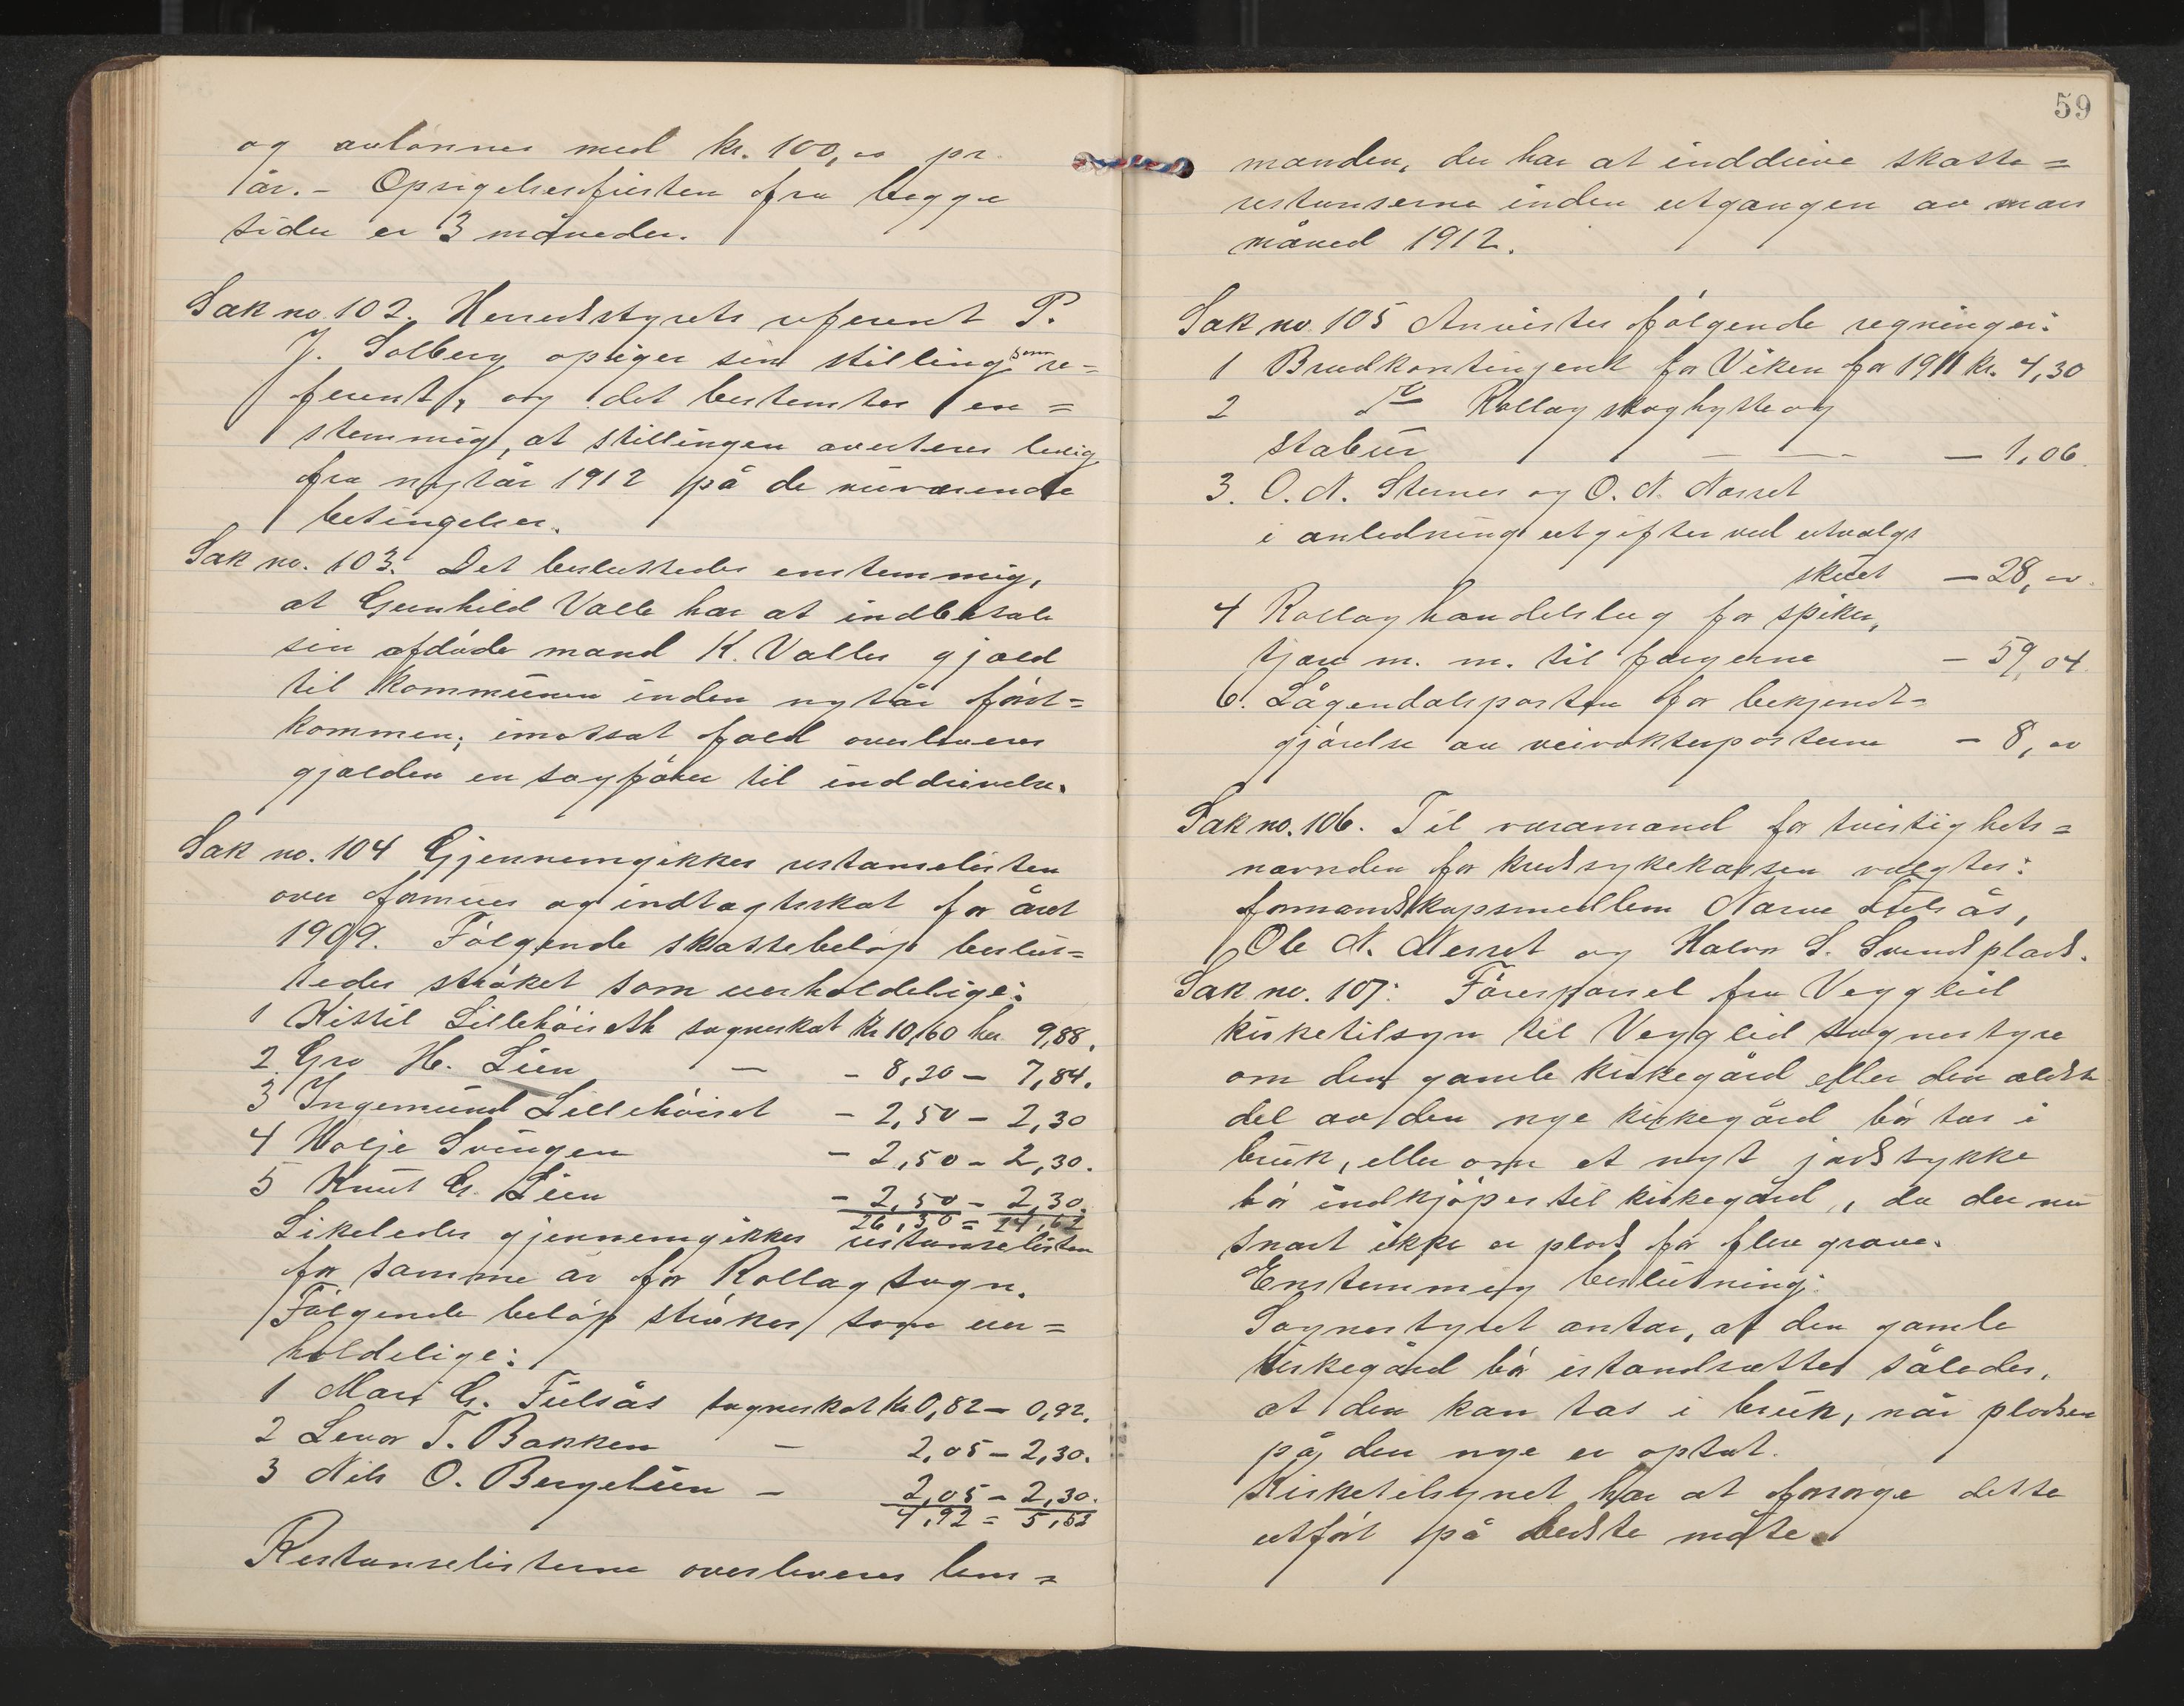 og avlønnes med kr. 100,00 pr.
år. – Opsigelsesfristen fra begge
sider er 3 måneder.
Sak no. 102. Herredstyrets referent P.
J. Solberg opsiger sin stilling som re=
ferent, og det bestemtes en=
stemmig, at stillingen averteres ledig
fra nytår 1912 på de nuværende
betingelser.
Sak no. 103. Det besluttedes enstemmig,
at Gunhild Valle har at indbetale
sin afdøde mand K. Valles gjæld
til kommunen inden nytår først=
kommen; imotsat fald overleveres
gjælden en sagfører til inddrivelse.
Sak no. 104 Gjennemgikkes restanselisten
over formues og indtægtsskat for året
1909. Følgende skattebeløp beslut=
tedes strøket som uerholdelige:
1 Kittil Lillehöiseth sogneskat Kr 10,60 her. 9,88.
2. Gro H. Lien — - 8,20 – 7,84.
3 Ingemund Lillehöiset – 2,50 – 2,30
4 Holje Svingen – 2,50 – 2,30.
5 Knut G. Lien – 2,50 – 2,30.
26,30 = 24,62
Likeledes gjennemgikkes restanselisten
for samme år for Rollag sogn.
Følgende beløp strøkes som uer=
holdelige:
1 Mari G. Fulsås sogneskat Kr 0,82 – 0,92.
2 Levor T. Bakken – 2,05 – 2,30.
3 Nils O. Bergelien – 2,05 – 2,30.
4,92 = 5,52
Restanselisterne overleveres lens=
59
manden, der har at inddrive skatte=
restanserne inden utgangen av mars
måned 1912.
Sak no. 105 Anvistes følgende regninger:
1 Brudkontingent for Viken for 1911 kr. 4,30
2 do Rollag skoghytte og
stabur — — — 1,06.
3. O. N. Sternes og O. N. Nørset
i anledning utgifter ved utvalgs
skuet – 28,00.
4 Rollag handelslag for spiker,
tjære m. m. til færgerne – 59,04.
6. Lågendalsposten for bekjendt=
gjørelse av veivokterposterne – 8,00
Sak no. 106. Til varamænd for tvistighets=
nævnden for kredssykekassen valgtes:
formandskapsmedlem Narve Fulsås,
Ole N. Nerset og Halvor S. Svendsplads.
Sak no. 107: Forespørsel fra Vegglid
kirketilsyn til Vegglid sognestyre
om den gamle kirkegård eller den ældste
del av den nye kirkegård bør tas i
bruk, eller om et nyt jordstykke
bør indkjøpes til kirkegård, da der nu
snart ikke er plads for flere grave.
Enstemmig beslutning:
Sognestyret antar, at den gamle
kirkegård bør istandsættes således,
at den kan tas i bruk, når pladsen
på den nye er optat.
Kirketilsynet har at forsørge dette
utført på bedste måte.